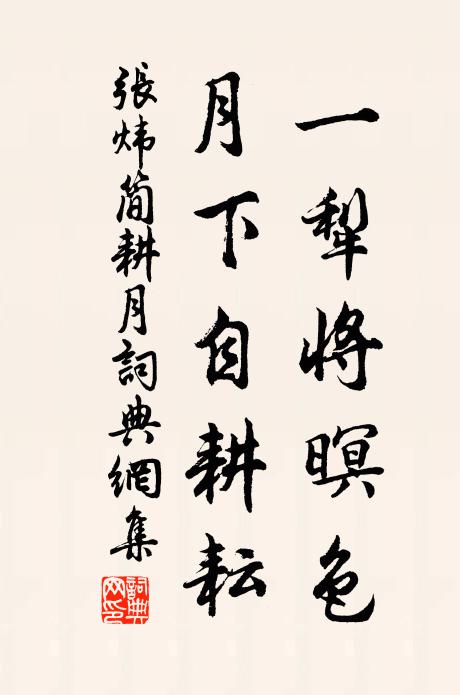 一犁將暝色
月下自耕耘
張炜简耕月詞典網集
詞典网印